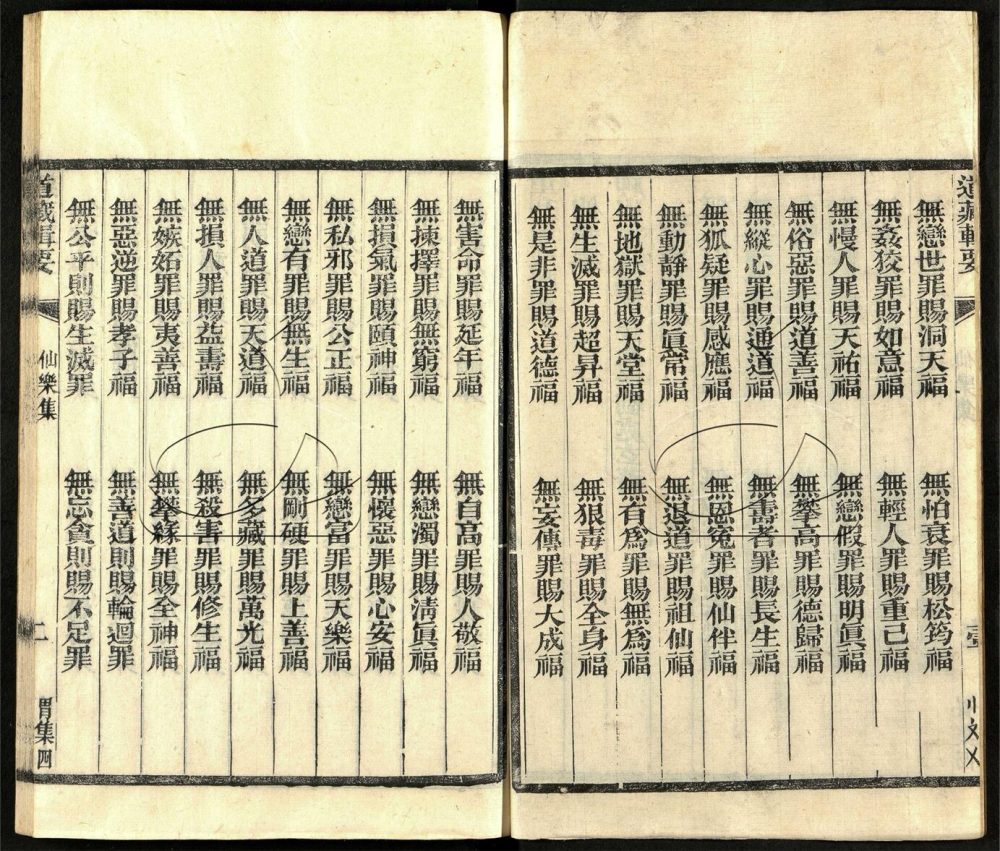 道藏輯要
無戀世罪賜洞天福 無怕衰罪賜松筠福
無姦狡罪賜如意福 無輕人罪賜重己福
無慢人罪賜天祐福 無戀假罪賜明眞福
無俗惡罪賜道善福 無攀高罪賜德歸福
無縱心罪賜通道福 無壽者罪賜長生福
無狐疑罪賜感應福 無恩冤罪賜仙伴福
無動靜罪賜眞常福 無退道罪賜祖仙福
無地獄罪賜天堂福 無有爲罪賜無爲福
無生滅罪賜超昇福 無狠毒罪賜全身福
無是非罪賜道德福 無妄傳罪賜大成福
無害命罪賜延年福 無自高罪賜人敬福
無揀擇罪賜無窮福 無戀濁罪賜淸眞福
無損氣罪賜頤神福 無懷惡罪賜心安福
無私邪罪賜公正福 無戀富罪賜天樂福
無戀有罪賜無生福 無剛硬罪賜上善福
無人道罪賜天道福 無多藏罪賜萬光福
無損人罪賜益壽福 無殺害罪賜修生福
無嫉妬罪賜夷善福 無攀緣罪賜全神福
無惡逆罪賜孝子福 無善道則賜輪迴罪
無公平則賜生滅罪 無忘貪則賜不足罪
道藏輯要 仙樂集 二 胃集四